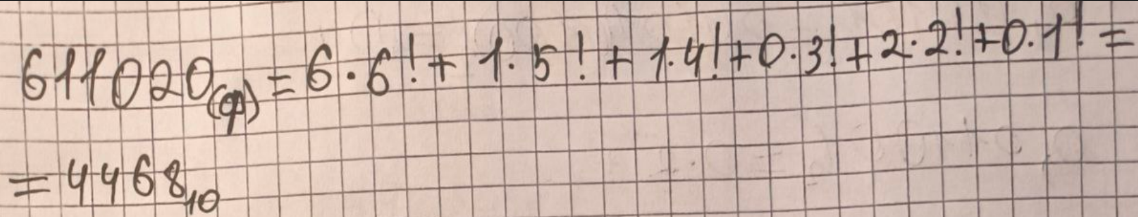 611020(ф) = 6·6! + 1·5! + 1·4! + 0·3! + 2·2! + 0·1! =
= 4468₁₀